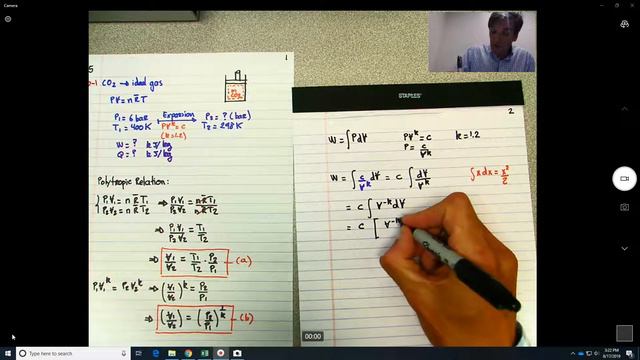 Camera
5
1
-1 CO2 → ideal gas
P∀ = n R̄ T
P1 = 6 bar
T1 = 400 K
Expansion
P∀^k = c
(k=1.2)
P2 = ? (bar)
T2 = 298 K
CO2
W = ? kJ/kg
Q = ? kJ/kg
Polytropic Relation:
{ P1∀1 = n R̄ T1
P2∀2 = n R̄ T2
⇒ P1∀1 / P2∀2 = n R̄ T1 / n R̄ T2
⇒ P1∀1 / P2∀2 = T1 / T2
⇒ ∀1/∀2 = T1/T2 · P2/P1 — (a)
P1∀1^k = P2∀2^k ⇒ (∀1/∀2)^k = P2/P1
⇒ (∀1/∀2) = (P2/P1)^(1/k) — (b)
STAPLES
2
W = ∫ P d∀ P∀^k = c k = 1.2
P = c/∀^k
W = ∫ c/∀^k d∀ = c ∫ d∀/∀^k ∫ x dx = x²/2
= c ∫ ∀^-k d∀
= c [ ∀^-k
00:00
Type here to search
5:02 PM
8/17/2019